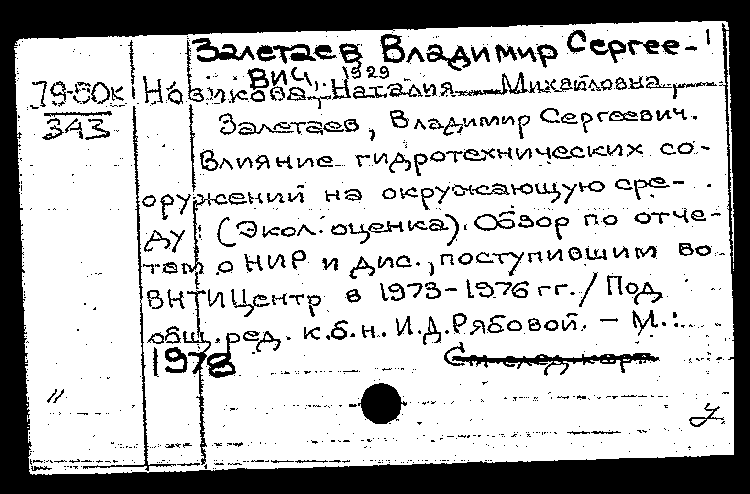 Залетаев Владимир Сергее- 1
вич, 1929
79-50к Новикова, Наталия Михайловна,
343 Залетаев, Владимир Сергеевич.
Влияние гидротехнических со-
оружений на окружающую сре-
ду: (Экол. оценка). Обзор по отче-
там о НИР и дис., поступившим во
ВНТИЦентр в 1973-1976 гг. / Под
общ. ред. к.б.н. И.Д. Рябовой. - М.:
1978 См. след. карт
"